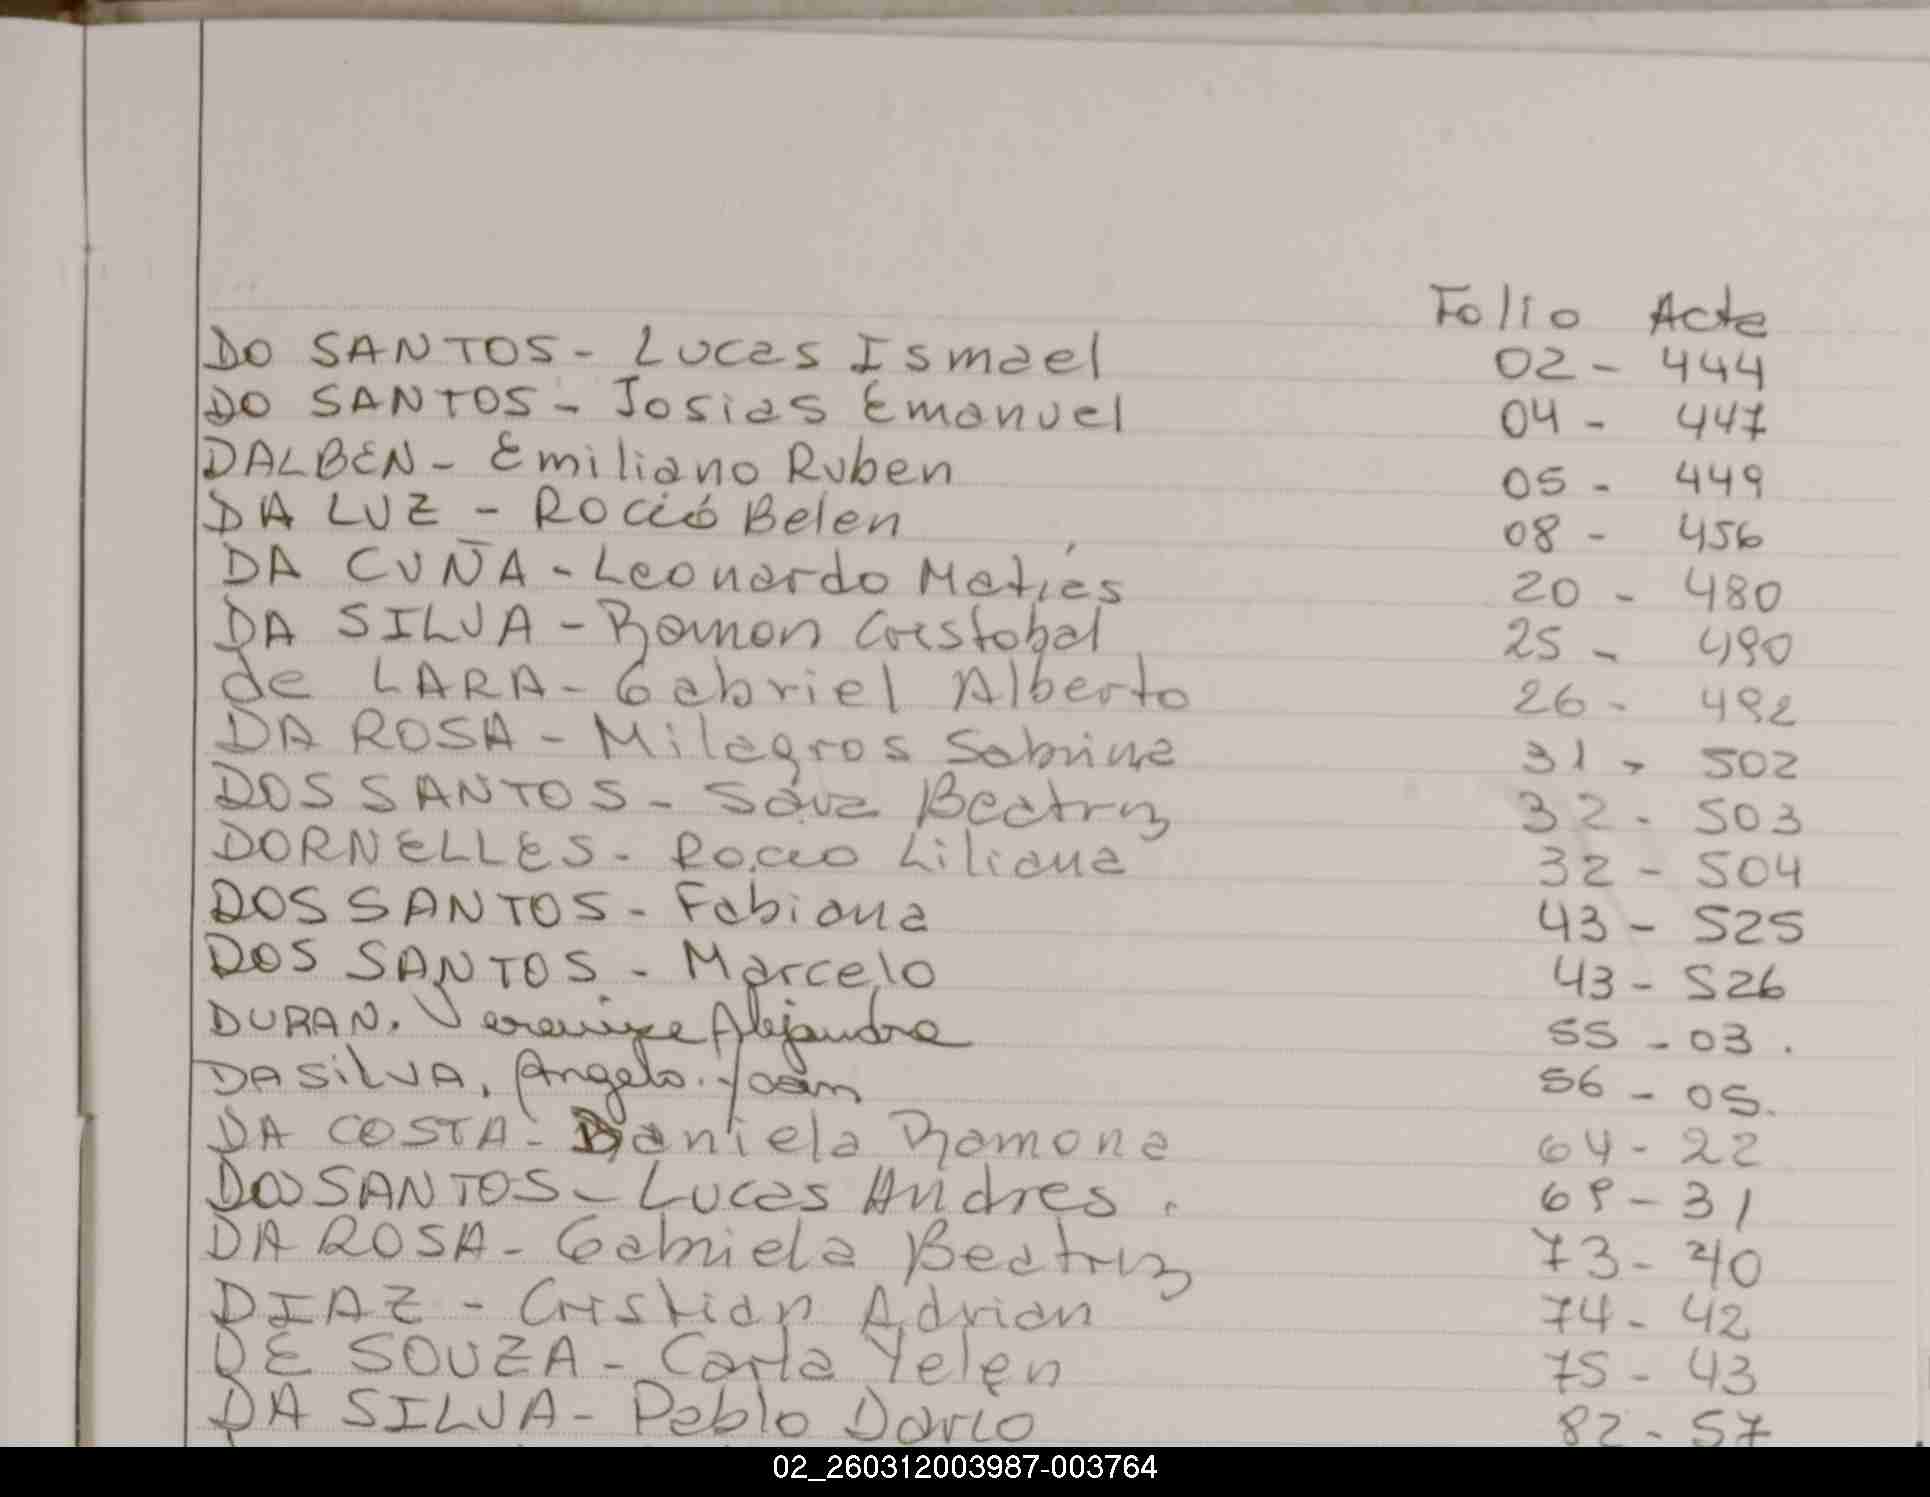 Folio Acta
DO SANTOS - Lucas Ismael 02 - 444
DO SANTOS - Josias Emanuel 04 - 447
DALBEN - Emiliano Ruben 05 - 449
DA LUZ - Roció Belen 08 - 456
DA CUÑA - Leonardo Matiás 20 - 480
DA SILVA - Ramon Cristobal 25 - 490
de LARA - Gabriel Alberto 26 - 492
DA ROSA - Milagros Sabrina 31 - 502
DOS SANTOS - Sara Beatriz 32 - 503
DORNELLES - Rocio Liliana 32 - 504
DOS SANTOS - Fabiana 43 - 525
DOS SANTOS - Marcelo 43 - 526
DURAN, Veronica Alejandra 55 - 03.
DA SILVA, Angelo 56 - 05.
DA COSTA - Daniela Ramona 64 - 22
DOS SANTOS - Lucas Andres. 69 - 31
DA ROSA - Gabriela Beatriz 73 - 40
DIAZ - Cristian Adrian 74 - 42
DE SOUZA - Carla Yelen 75 - 43
DA SILVA - Pablo Dario 82 - 57
02_260312003987-003764